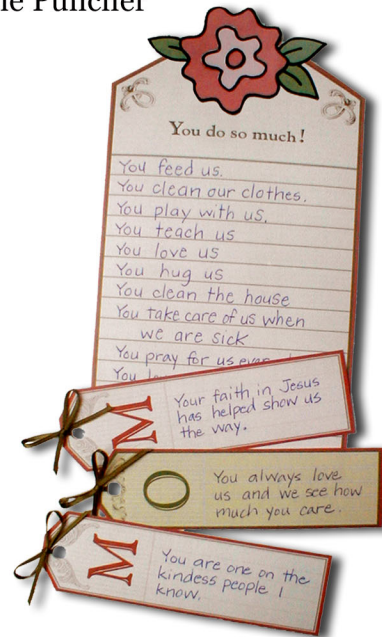 le Puncher
You do so much!
You feed us.
You clean our clothes.
You play with us.
You teach us
You love us
You hug us
You clean the house
You take care of us when
we are sick
You pray for us
You
M
Your faith in Jesus
has helped show us
the way.
O
You always love
us and we see how
much you care.
M
You are one on the
kindess people I
know.